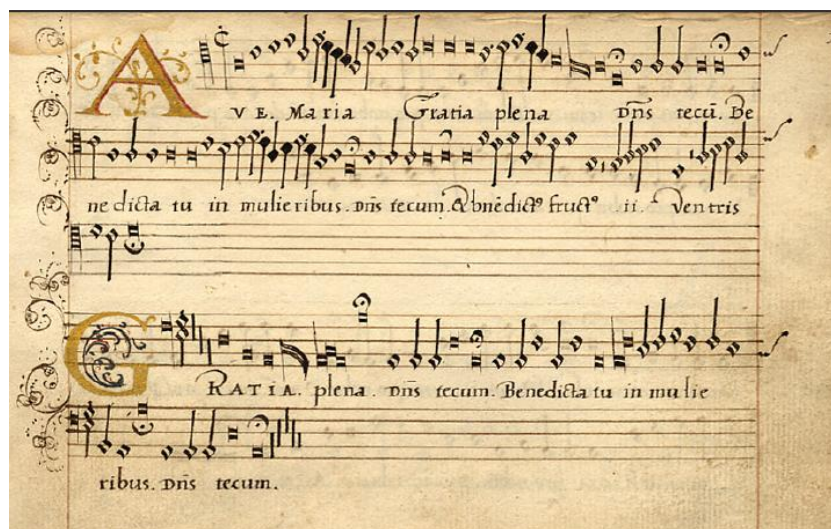 AVE. Maria Gratia plena Dn̄s tecū. Be
ne dicta tu in mulieribus. Dn̄s tecum. & bnēdictꝰ fructꝰ ii. Ventris
GRATIA. plena. Dn̄s tecum. Benedicta tu in mulie
ribus. Dn̄s tecum.